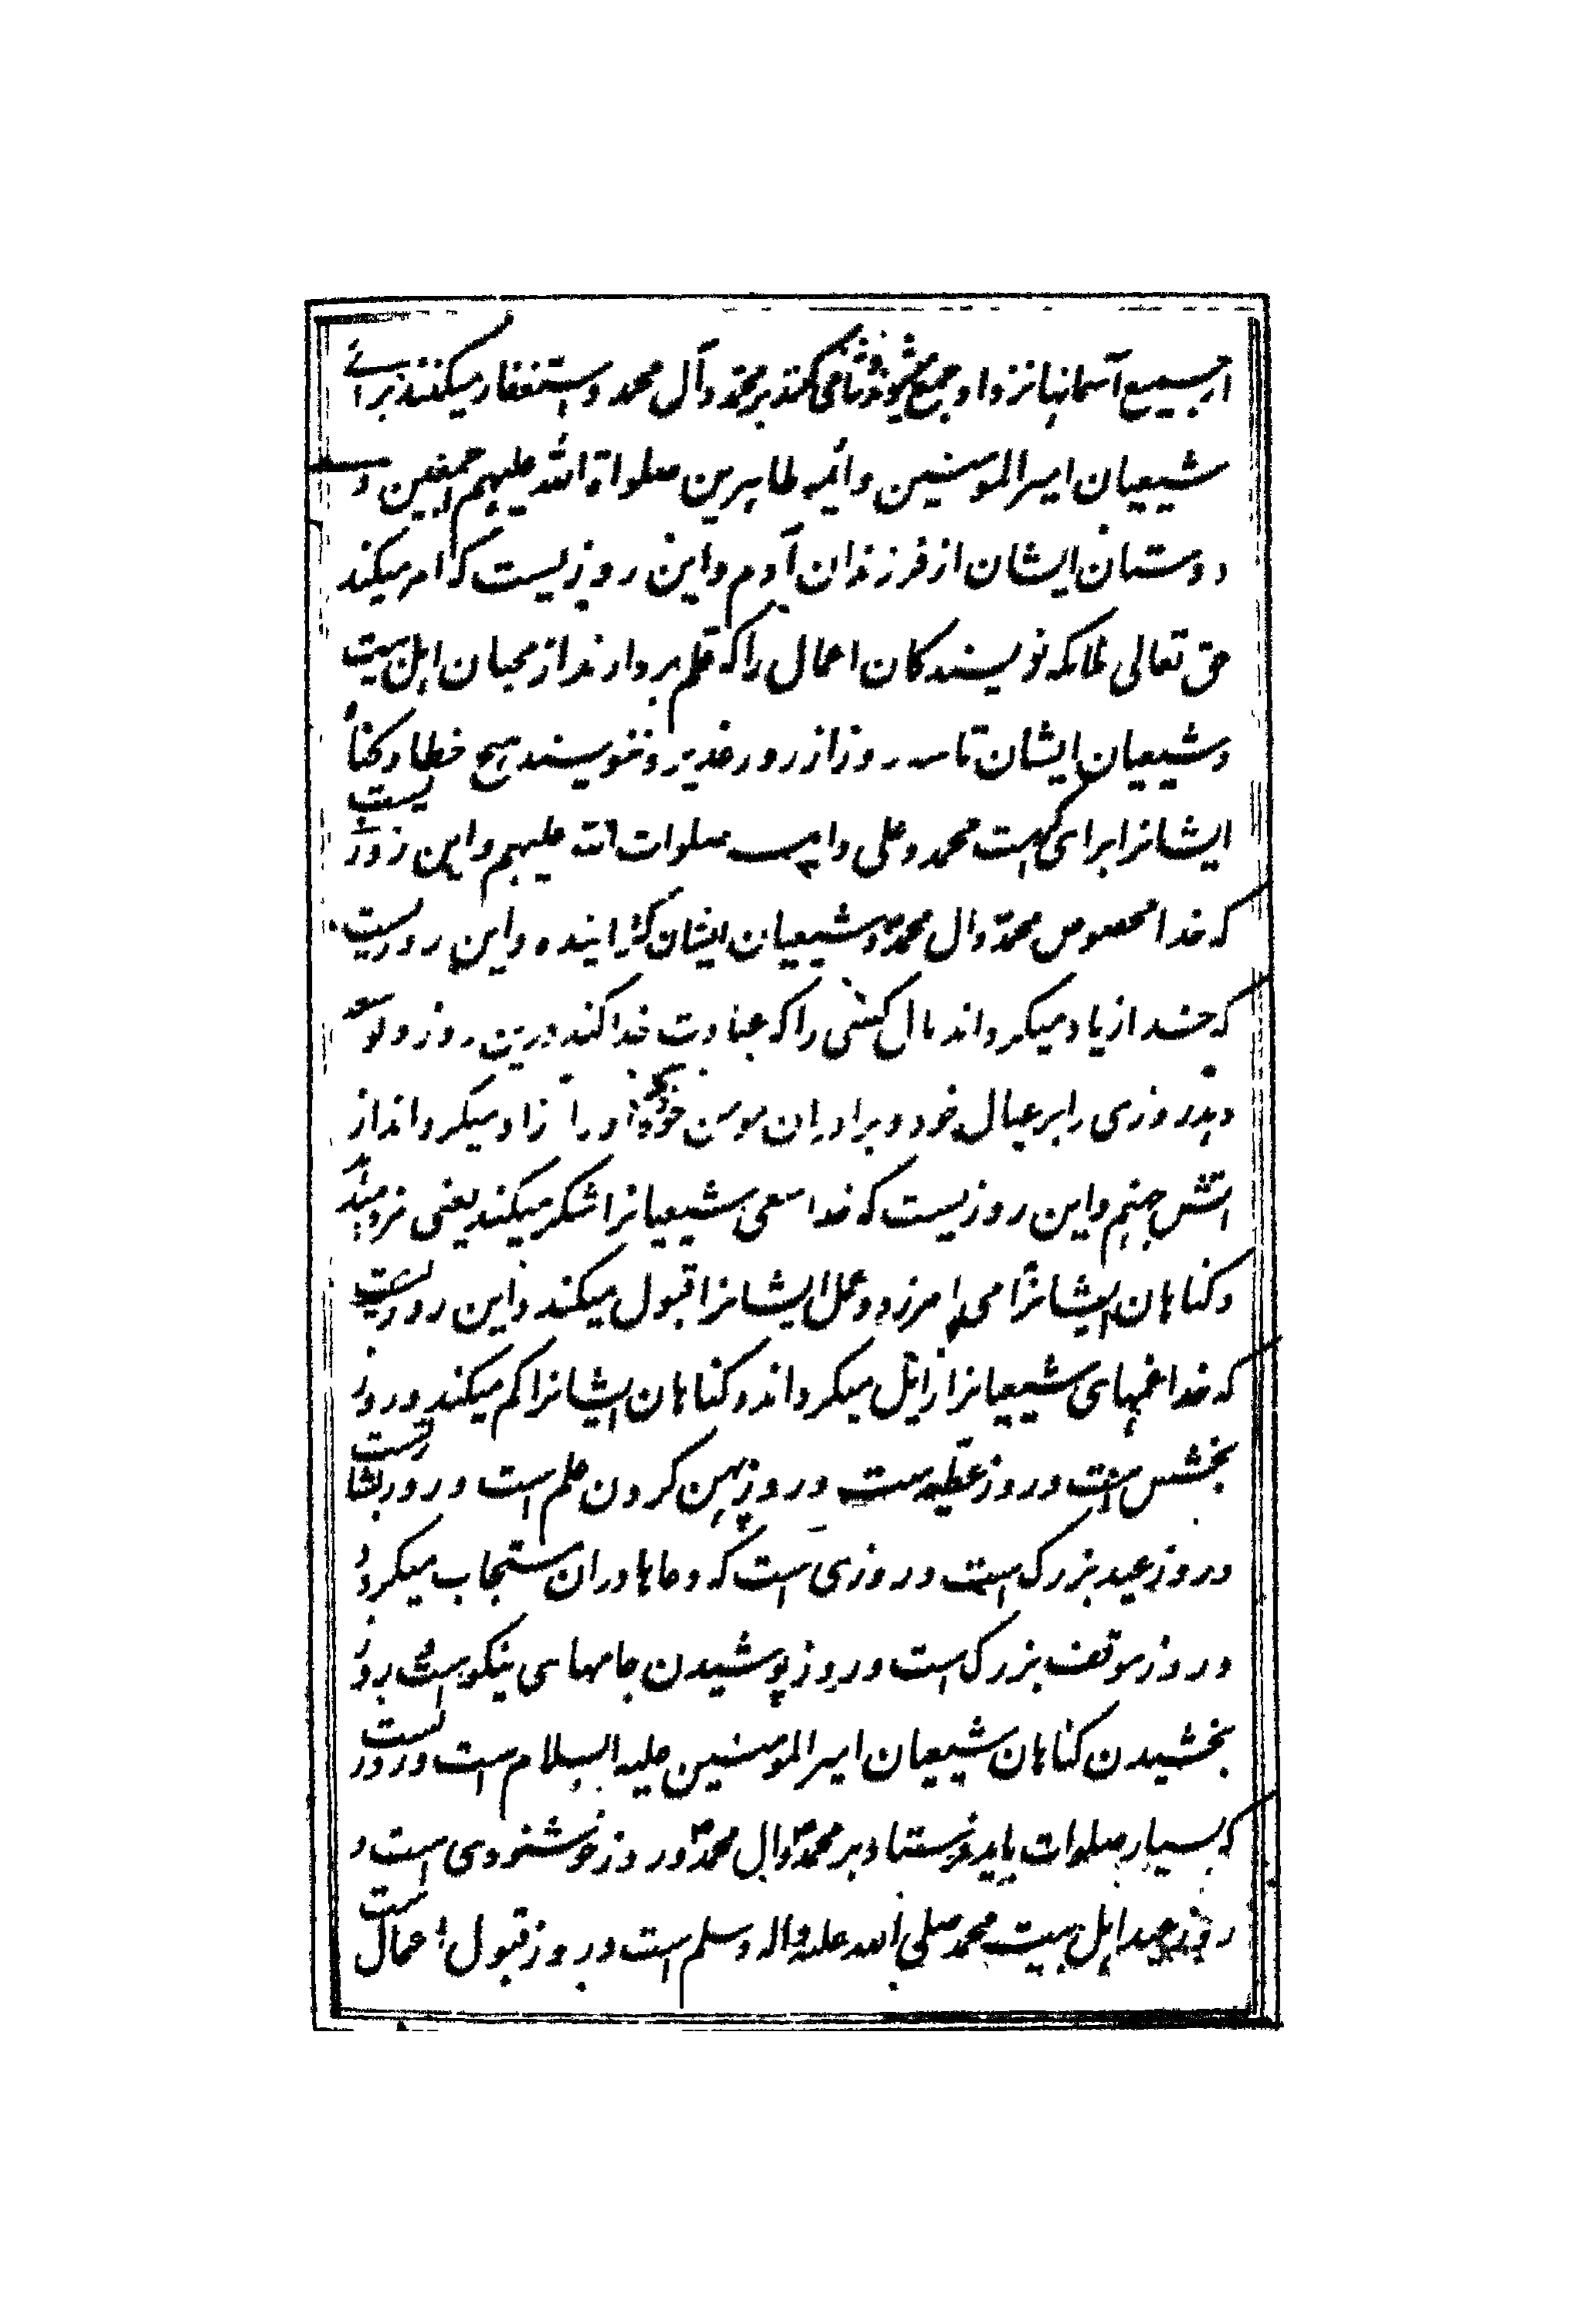 از جمیع آسمانها نزد او جمع میشوند و ثنا می کنند بر محمد و آل محمد و استغفار میکنند برای
شیعیان امیرالمومنین و ائمه طاهرین صلواة الله علیهم اجمعین و
دوستان ایشان از فرزندان آدم و این روزیست که امر میکند
حق تعالی ملائکه نویسندکان اعمال را که قلم بردارند از محبان اهل بیت
و شیعیان ایشان تا سه روز از روز غدیر و ننویسند هیچ خطا و کناه
ایشانرا برای کرامت محمد و علی و ایمه صلوات الله علیهم و این روزیست
که خدا مخصوص محمد و ال محمد و شیعیان ایشان کردانیده و این روزیست
که خدا زیاد میکرداند مال کسی را که عبادت خدا کند درین روز و توسعه
دهد روزی را بر عیال خود و برادران مومن خود و او را آزاد میکرداند از
اتش جهنم و این روزیست که خدا سعی شیعیانرا شکر میکند یعنی مزد میدهد
و کناهان ایشانرا می امرزد و عمل ایشانرا قبول میکند و این روزیست
که خدا غمهای شیعیانرا زایل میکرداند و کناهان ایشانرا کم میکند و روز
بخشش است و روز عطیه است و روز پهن کردن علم است و روز بشارتست
و روز عید بزرک است و روزی است که دعاها دران مستجاب میکردد
و روز موقف بزرک است و روز پوشیدن جامهای نیکو است و روز
بخشیدن کناهان شیعیان امیرالمومنین علیه السلام است و روزیست
که بسیار صلوات باید فرستاد بر محمد و ال محمد و روز خوشنودی است و
روز عید اهل بیت محمد صلی الله علیه و اله و سلم است و روز قبول اعمال است